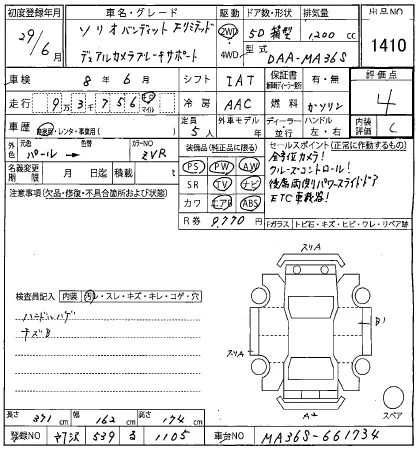 初度登録年月 車名・グレード 駆動 ドア数・形状 排気量 出品NO
29/6 ソリオ バンディット Fリミテッド 2WD 5D 箱型 1,200 cc 1410
デュアルカメラブレーキサポート 4WD 型式 DAA-MA36S
車検 8年 6月 シフト IAT 保証書 有・無 評価点
走行 9万3千756 キロ マイル 冷房 AAC 燃料 ガソリン 4
車歴 自家用・レンタ・事業用( ) 定員 5人 外車モデル 年 ディーラー・並行 ハンドル 左・右 内装評価 C
外色 パール → カラーNO ZVR 装備品(純正品に限る) セールスポイント(正常に作動するもの)
名義変更期限 月 日迄 積載 t PS PW AW 全方位カメラ!
注意事項(欠品・修復・不具合箇所および状態) SR TV ナビ クルーズコントロール!
カワ エアB ABS 後席両側パワースライドドア
R券 9,770円 ETC車載器!
Fガラス トビ石・キズ・ヒビ・ワレ・リペア跡
スリA
検査員記入 内装 汚レ・スレ・キズ・キレ・コゲ・穴
ハンドルハゲ B1
キズB スリA
スペア
A2
長さ 371 cm 幅 162 cm 高さ 174 cm
登録NO 539 る 1105 車台NO MA36S-661734